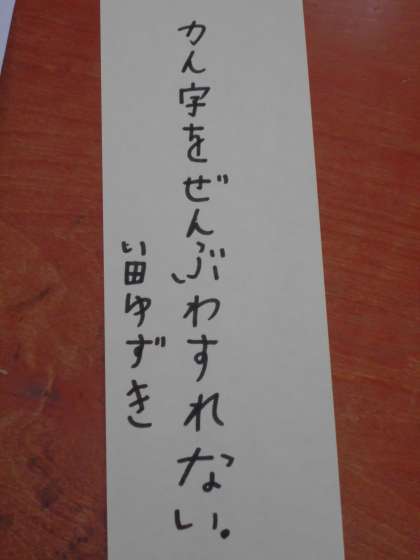 カん字をぜんぶわすれない。
い田ゆずき